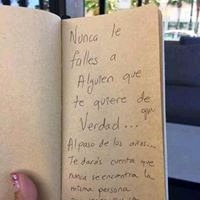 Nunca le
falles a
Alguien que
te quiere de
Verdad...
Al paso de los años...
Te darás cuenta que
nunca se encuentra la
misma persona